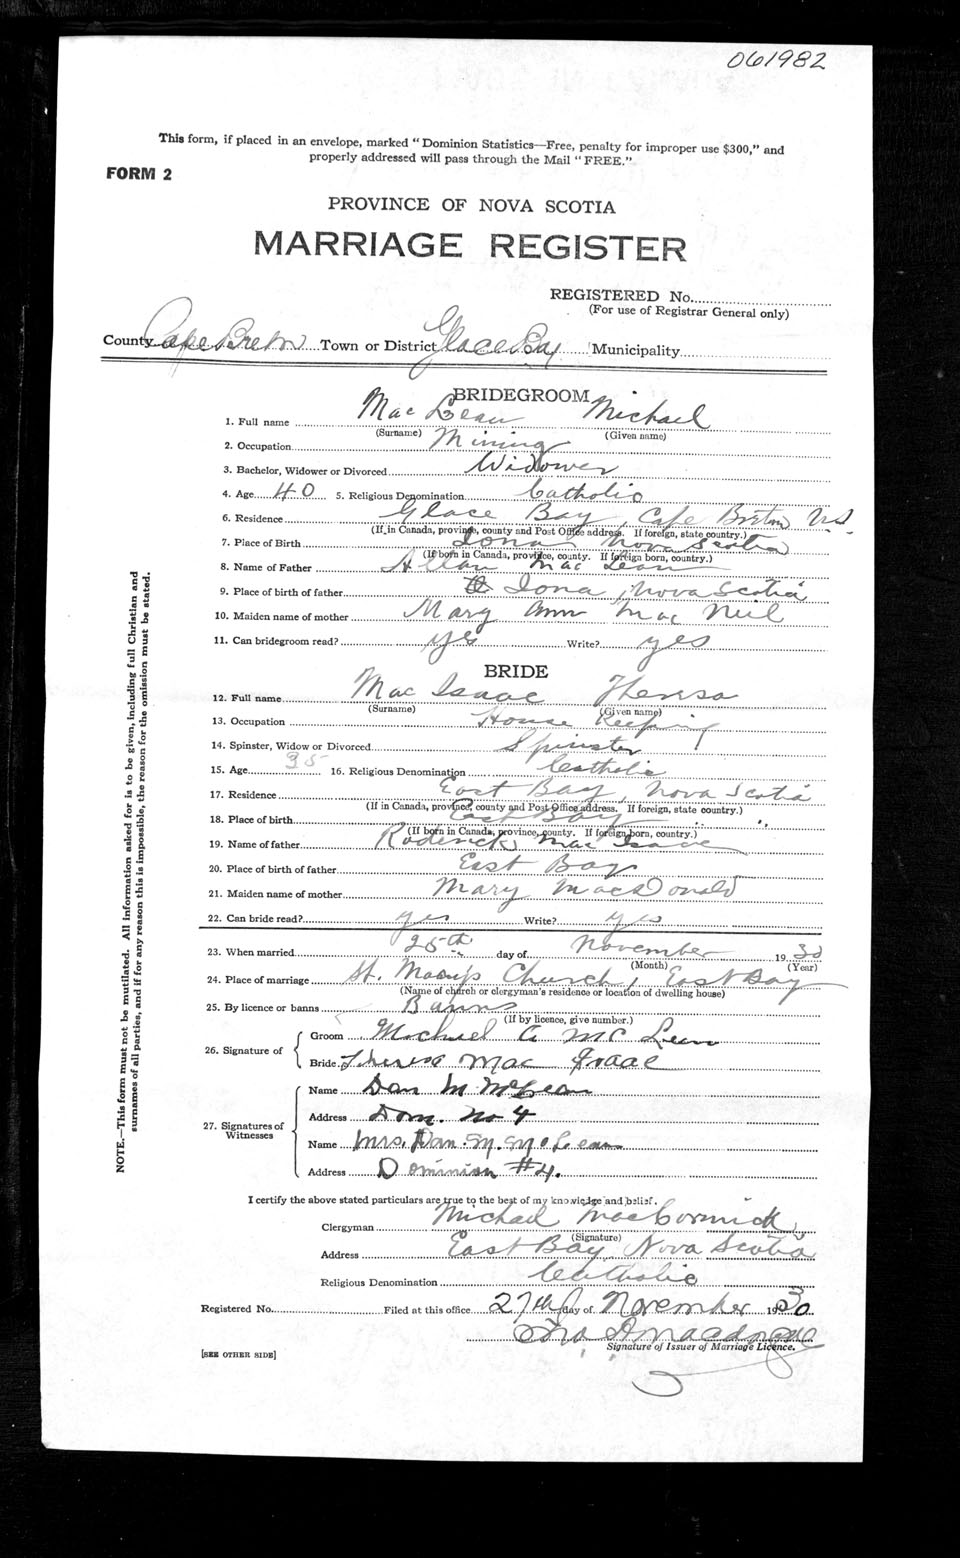 061982
This form, if placed in an envelope, marked "Dominion Statistics—Free, penalty for improper use $300," and
properly addressed will pass through the Mail "FREE."
FORM 2
PROVINCE OF NOVA SCOTIA
MARRIAGE REGISTER
REGISTERED No.
(For use of Registrar General only)
County Cape Breton Town or District Glace Bay Municipality
BRIDEGROOM
1. Full name Mac Lean Michael
(Surname) (Given name)
2. Occupation Mining
3. Bachelor, Widower or Divorced Widower
4. Age 40 5. Religious Denomination Catholic
6. Residence Glace Bay, Cape Breton N.S.
(If in Canada, province, county and Post Office address. If foreign, state country.)
7. Place of Birth Iona Nova Scotia
(If born in Canada, province, county. If foreign born, country.)
8. Name of Father Allan Mac Lean
9. Place of birth of father Iona, Nova Scotia
10. Maiden name of mother Mary Ann Mac Neil
11. Can bridegroom read? yes Write? yes
BRIDE
12. Full name Mac Isaac Theresa
(Surname) (Given name)
13. Occupation House Keeping
14. Spinster, Widow or Divorced Spinster
15. Age 35 16. Religious Denomination Catholic
17. Residence East Bay, Nova Scotia
(If in Canada, province, county and Post Office address. If foreign, state country.)
18. Place of birth East Bay " "
(If born in Canada, province, county. If foreign born, country.)
19. Name of father Roderick Mac Isaac
20. Place of birth of father East Bay
21. Maiden name of mother Mary MacDonald
22. Can bride read? yes Write? yes
23. When married 25th day of November 1930
(Month) (Year)
24. Place of marriage St. Mary's Church, East Bay
(Name of church or clergyman's residence or location of dwelling house)
25. By licence or banns Banns
(If by licence, give number.)
26. Signature of
Groom Michael A Mc Lean
Bride Theresa Mac Isaac
27. Signatures of Witnesses
Name Dan M McLean
Address Dom. No 4
Name Mrs. Dan. M. McLean
Address Dominion #4.
I certify the above stated particulars are true to the best of my knowledge and belief.
Clergyman Michael MacCormick
(Signature)
Address East Bay, Nova Scotia
Religious Denomination Catholic
Registered No. Filed at this office 27th day of November 1930
Signature of Issuer of Marriage Licence.
[SEE OTHER SIDE]
NOTE.—This form must not be mutilated. All information asked for is to be given, including full Christian and
surnames of all parties, and if for any reason this is impossible, the reason for the omission must be stated.